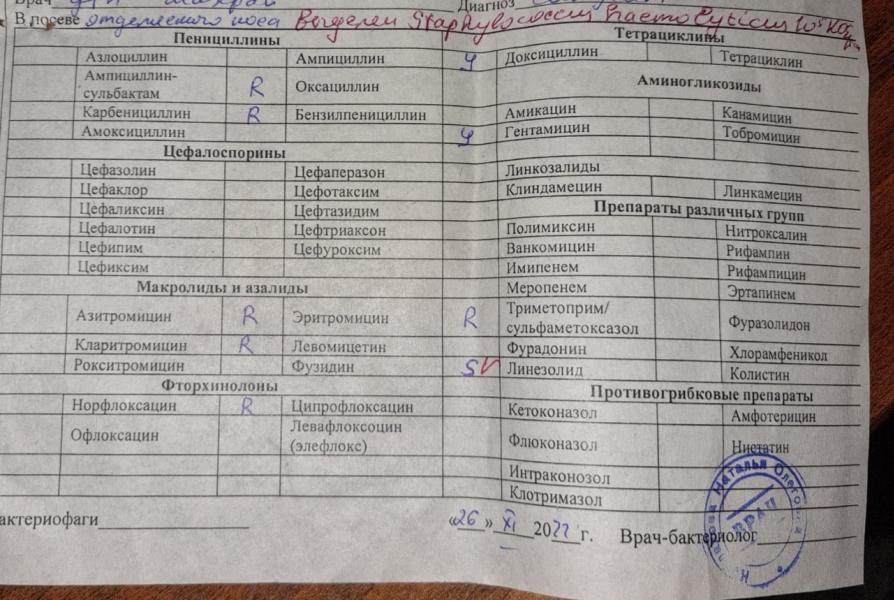 Врач
Диагноз
В посеве отделяемого носа Выделен Staphylococcus haemolyticus 10⁵ КОЕ
Пенициллины Тетрациклины
Азлоциллин Ампициллин Ч Доксициллин Тетрациклин
Ампициллин-
сульбактам R Оксациллин Аминогликозиды
Карбенициллин R Бензилпенициллин Амикацин Канамицин
Амоксициллин Ч Гентамицин Тобромицин
Цефалоспорины
Цефазолин Цефаперазон Линкозалиды
Цефаклор Цефотаксим Клиндамецин Линкамецин
Цефаликсин Цефтазидим Препараты различных групп
Цефалотин Цефтриаксон Полимиксин Нитроксалин
Цефипим Цефуроксим Ванкомицин Рифампин
Цефиксим Имипенем Рифампицин
Макролиды и азалиды Меропенем Эртапинем
Азитромицин R Эритромицин R Триметоприм/
сульфаметоксазол Фуразолидон
Кларитромицин R Левомицетин Фурадонин Хлорамфеникол
Рокситромицин Фузидин S V Линезолид Колистин
Фторхинолоны Противогрибковые препараты
Норфлоксацин R Ципрофлоксацин Кетоконазол Амфотерицин
Офлоксацин Левафлоксоцин
(элефлокс) Флюконазол Нистатин
Интраконозол
Клотримазол
актериофаги
«26» XI 2022 г. Врач-бактериолог
Наталья Олеговна
ВРАЧ